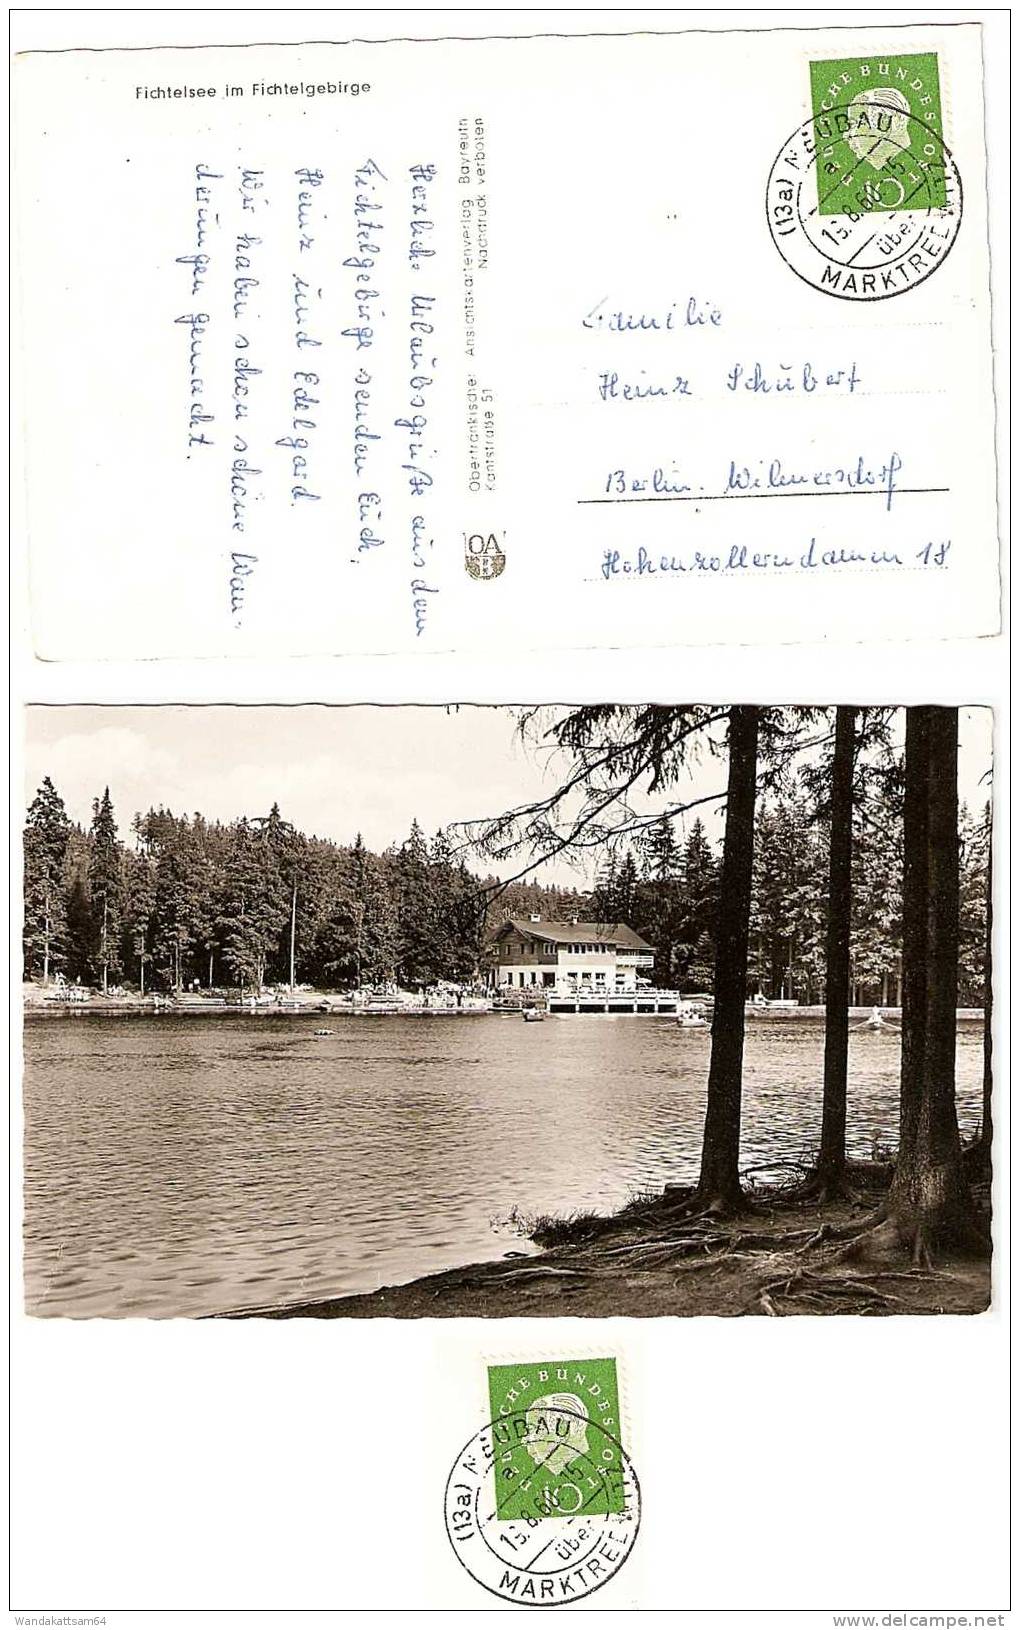 Fichtelsee im Fichtelgebirge
Herzliche Urlaubsgrüße aus dem
Fichtelgebirge senden Euch,
Heinz und Edelgard.
Wir haben schon schöne Wan-
derungen gemacht.
Oberfränkischer Ansichtskartenverlag Bayreuth
Kantstraße 51 Nachdruck verboten
OA
DEUTSCHE BUNDESPOST
(13a) NEUBAU
a
8.60.-15
über
MARKTREDWITZ
Familie
Heinz Schubert
Berlin-Wilmersdorf
Hohenzollerndamm 18
DEUTSCHE BUNDESPOST
(13a) NEUBAU
a
8.60.-15
über
MARKTREDWITZ
Wandakattsam64
www.delcampe.net